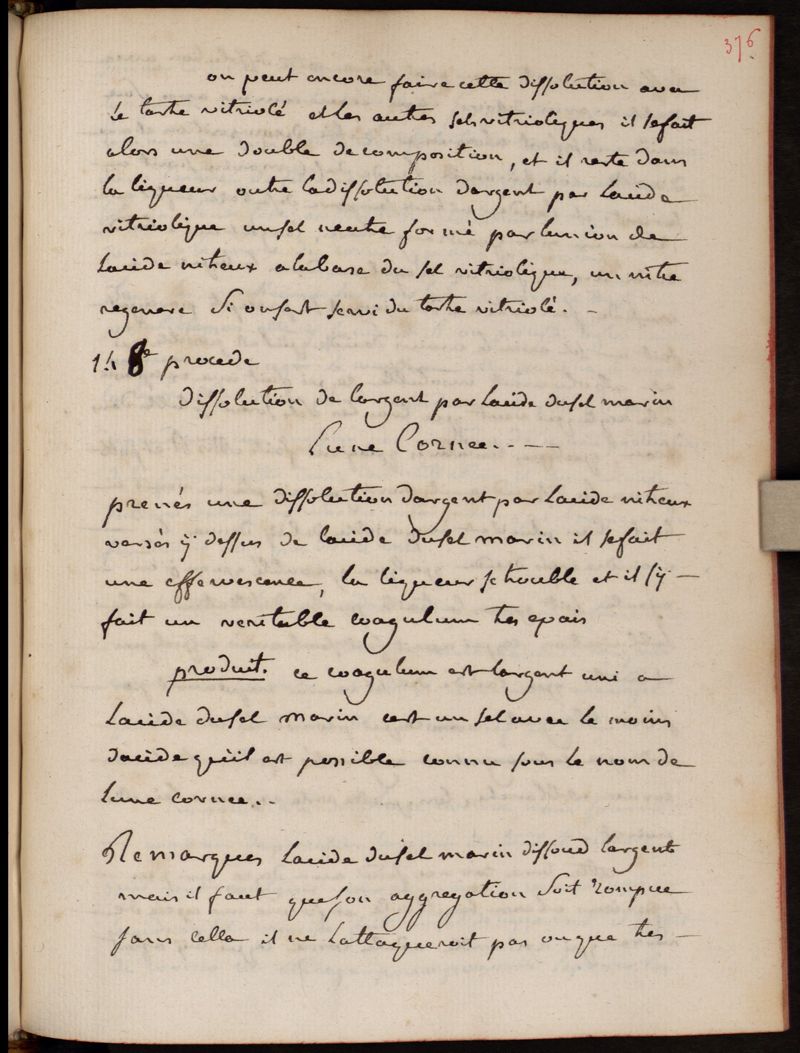 376.
on peut encore faire cette dissolution avec
le tartre vitriolé et les autres sels vitrioliques il se fait
alors une double decomposition, et il reste dans
la liqueur outre la dissolution dargent par lacide
vitriolique un sel neutre formé par lunion de
lacide nitreux a la base du sel vitriolique, un nitre
regenere si on sest servi du tartre vitriolé. -
14 8e procede
dissolution de largent par lacide du sel marin
Lune Cornee. . - —
prenés une dissolution dargent par lacide nitreux
versés ÿ dessus de lacide du sel marin il se fait
une effervescence, la liqueur se trouble et il sÿ —
fait un veritable coagulum tres epais
produit. ce coagulum est largent uni a
lacide du sel marin cest un sel avec le moins
dacide quil est possible connu sous le nom de
lune cornee. .
Remarques lacide du sel marin dissoud largent
mais il faut que son aggregation soit rompue
sans cella il ne lattaqueroit pas ou que tres —